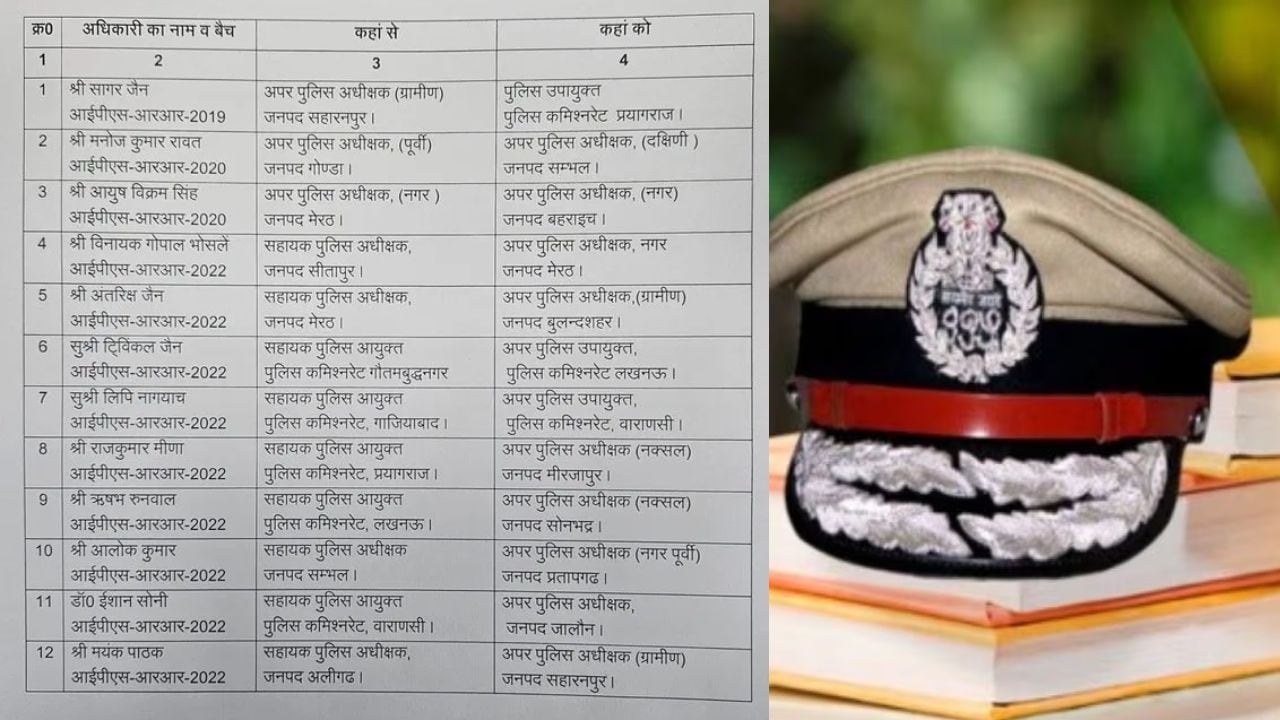 क्र0 अधिकारी का नाम व बैच कहां से कहां को
1 2 3 4
1 श्री सागर जैन अपर पुलिस अधीक्षक (ग्रामीण) पुलिस उपायुक्त
आईपीएस-आरआर-2019 जनपद सहारनपुर। पुलिस कमिश्नरेट प्रयागराज।
2 श्री मनोज कुमार रावत अपर पुलिस अधीक्षक, (पूर्वी) अपर पुलिस अधीक्षक, (दक्षिणी )
आईपीएस-आरआर-2020 जनपद गोण्डा। जनपद सम्भल।
3 श्री आयुष विक्रम सिंह अपर पुलिस अधीक्षक, (नगर ) अपर पुलिस अधीक्षक, (नगर)
आईपीएस-आरआर-2020 जनपद मेरठ। जनपद बहराइच।
4 श्री विनायक गोपाल भोसलें सहायक पुलिस अधीक्षक, अपर पुलिस अधीक्षक, नगर
आईपीएस-आरआर-2022 जनपद सीतापुर। जनपद मेरठ।
5 श्री अंतरिक्ष जैन सहायक पुलिस अधीक्षक, अपर पुलिस अधीक्षक,(ग्रामीण)
आईपीएस-आरआर-2022 जनपद मेरठ। जनपद बुलन्दशहर।
6 सुश्री ट्विंकल जैन सहायक पुलिस आयुक्त अपर पुलिस उपायुक्त,
आईपीएस-आरआर-2022 पुलिस कमिश्नरेट गौतमबुद्धनगर पुलिस कमिश्नरेट लखनऊ।
7 सुश्री लिपि नागयाच सहायक पुलिस आयुक्त अपर पुलिस उपायुक्त,
आईपीएस-आरआर-2022 पुलिस कमिश्नरेट, गाजियाबाद। पुलिस कमिश्नरेट, वाराणसी।
8 श्री राजकुमार मीणा सहायक पुलिस आयुक्त अपर पुलिस अधीक्षक (नक्सल)
आईपीएस-आरआर-2022 पुलिस कमिश्नरेट, प्रयागराज। जनपद मीरजापुर।
9 श्री ऋषभ रुनवाल सहायक पुलिस आयुक्त अपर पुलिस अधीक्षक (नक्सल)
आईपीएस-आरआर-2022 पुलिस कमिश्नरेट, लखनऊ। जनपद सोनभद्र।
10 श्री आलोक कुमार सहायक पुलिस अधीक्षक अपर पुलिस अधीक्षक (नगर पूर्वी)
आईपीएस-आरआर-2022 जनपद सम्भल। जनपद प्रतापगढ।
11 डॉ0 ईशान सोनी सहायक पुलिस आयुक्त अपर पुलिस अधीक्षक,
आईपीएस-आरआर-2022 पुलिस कमिश्नरेट, वाराणसी। जनपद जालौन।
12 श्री मयंक पाठक सहायक पुलिस अधीक्षक, अपर पुलिस अधीक्षक (ग्रामीण)
आईपीएस-आरआर-2022 जनपद अलीगढ। जनपद सहारनपुर।